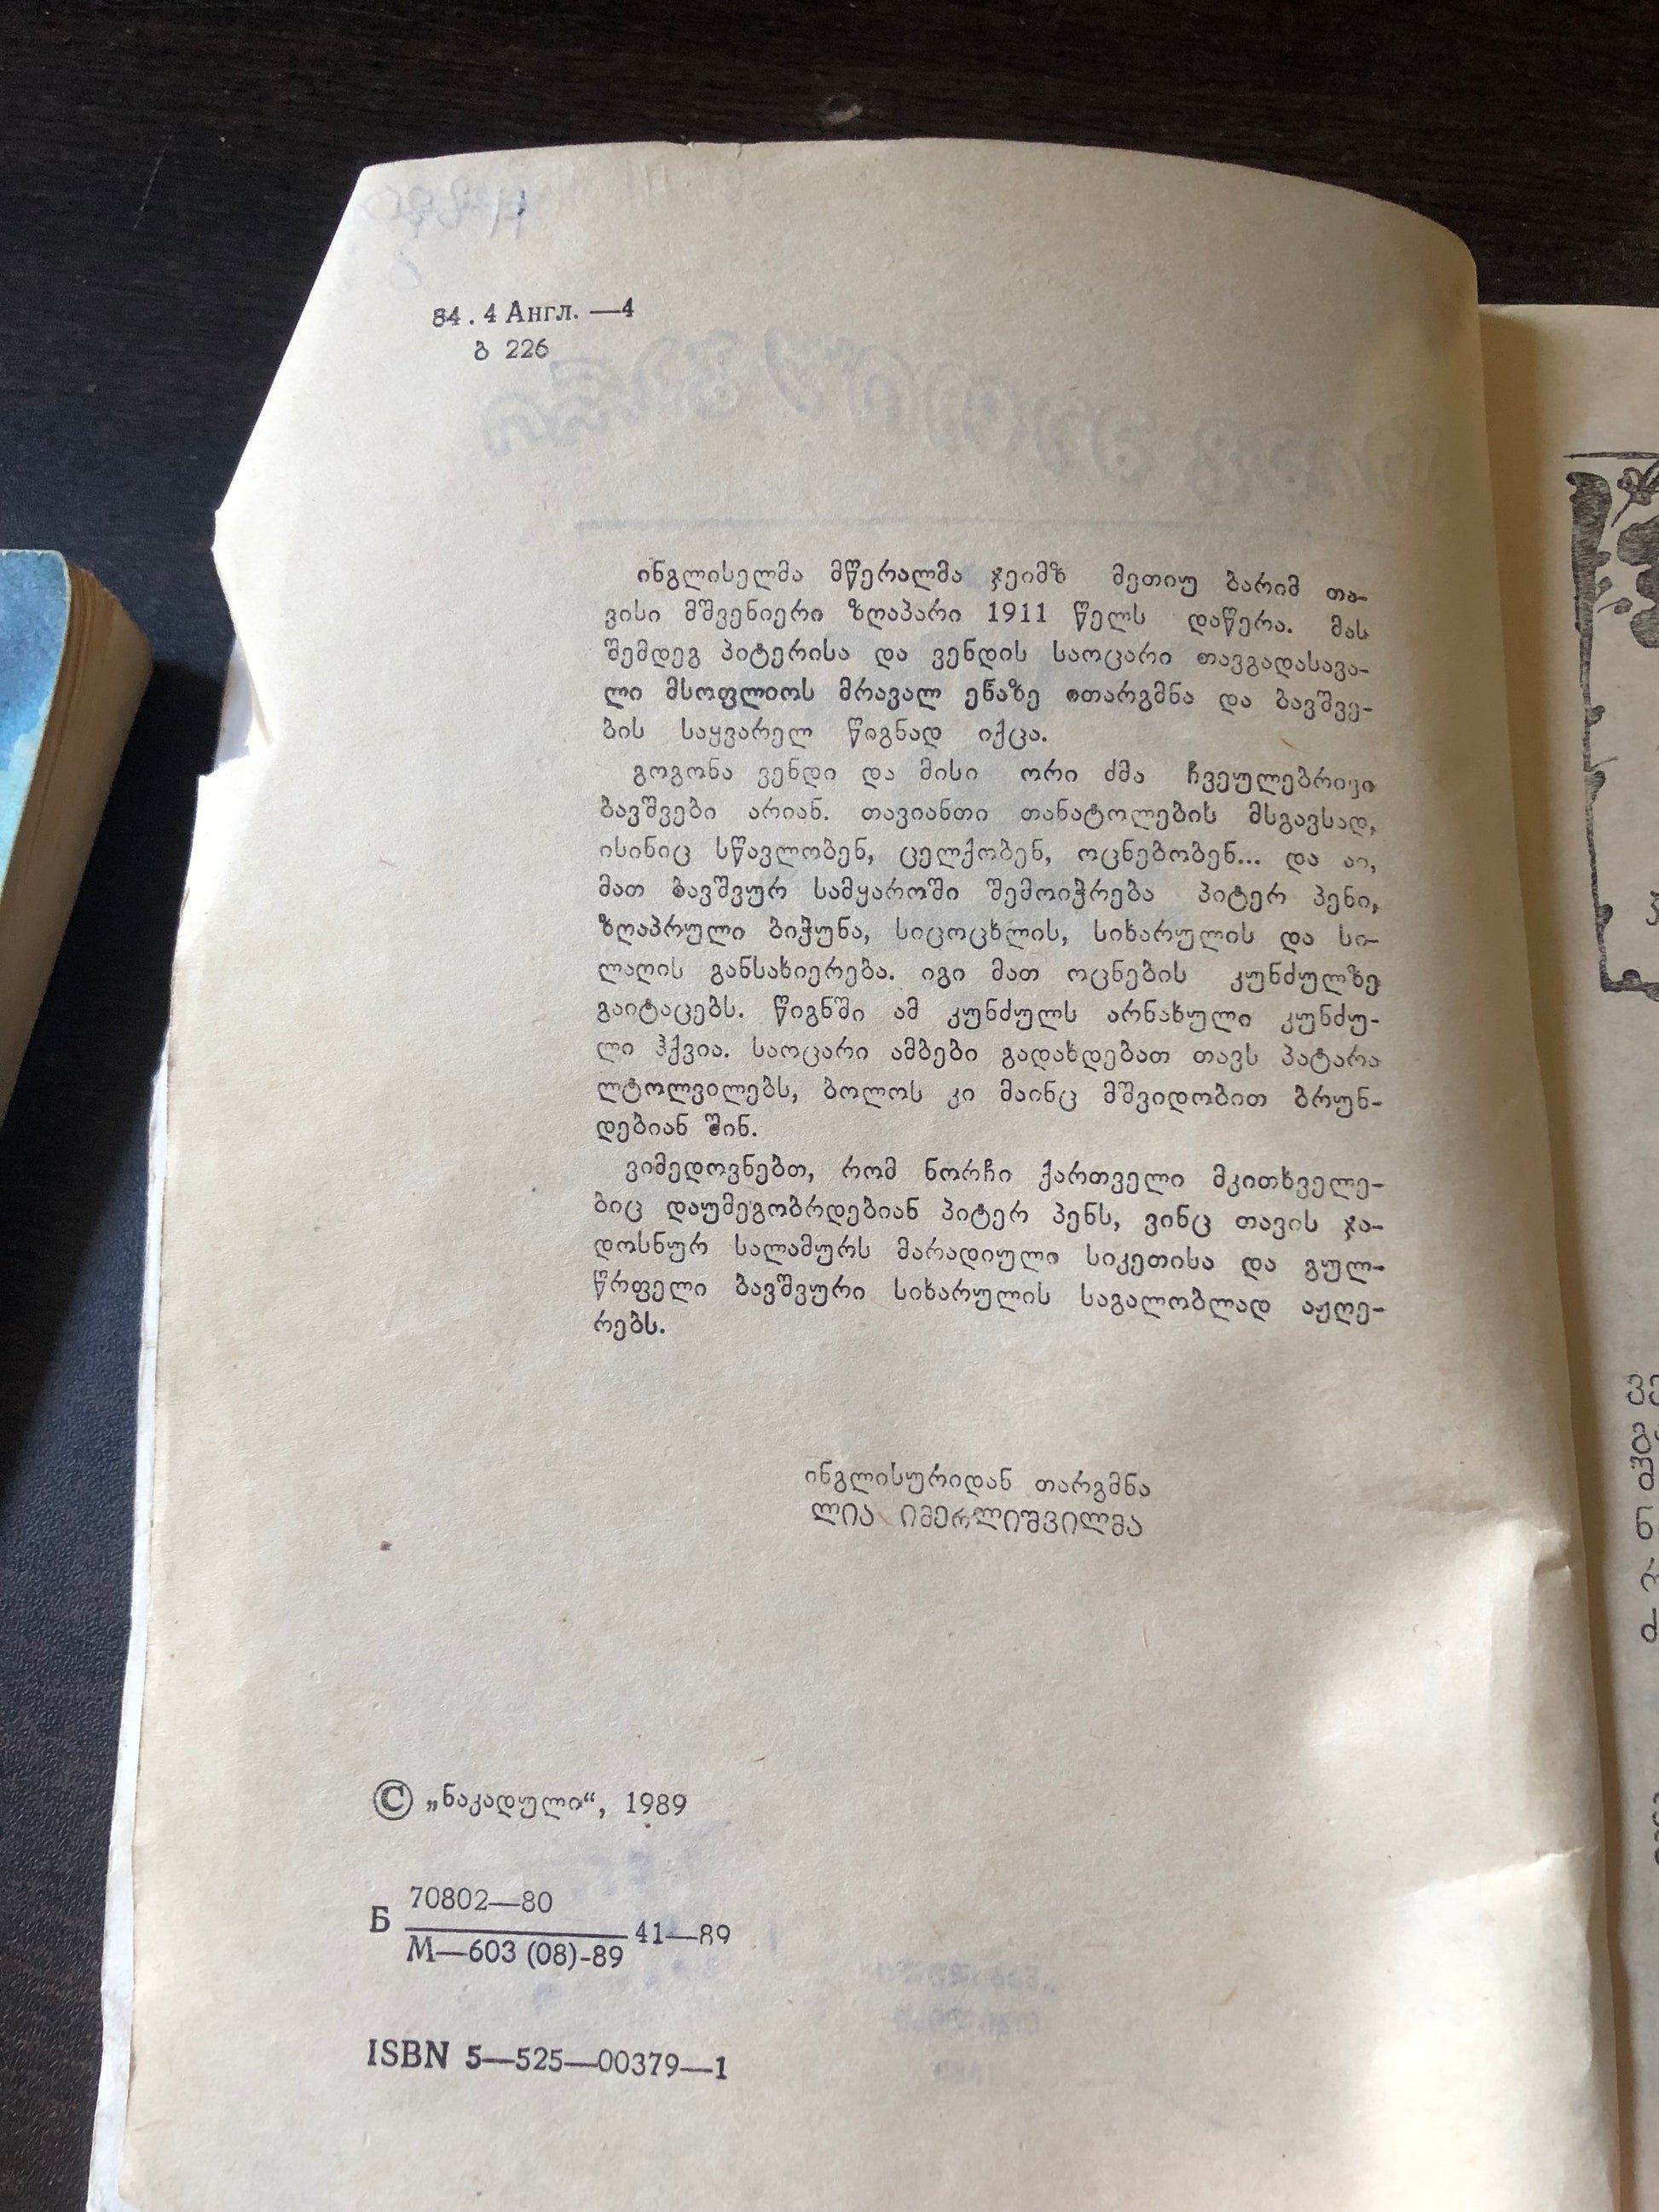 84.4 Англ. —4
ბ 226
ინგლისელმა მწერალმა ჯეიმზ მეთიუ ბარიმ თა-
ვისი მშვენიერი ზღაპარი 1911 წელს დაწერა. მას
შემდეგ პიტერისა და ვენდის საოცარი თავგადასავა-
ლი მსოფლიოს მრავალ ენაზე ითარგმნა და ბავშვე-
ბის საყვარელ წიგნად იქცა.
გოგონა ვენდი და მისი ორი ძმა ჩვეულებრივი
ბავშვები არიან. თავიანთი თანატოლების მსგავსად,
ისინიც სწავლობენ, ცელქობენ, ოცნებობენ... და აი,
მათ ბავშვურ სამყაროში შემოიჭრება პიტერ პენი,
ზღაპრული ბიჭუნა, სიცოცხლის, სიხარულის და სი-
ლაღის განსახიერება. იგი მათ ოცნების კუნძულზე
გაიტაცებს. წიგნში ამ კუნძულს არნახული კუნძუ-
ლი ჰქვია. საოცარი ამბები გადახდებათ თავს პატარა
ლტოლვილებს, ბოლოს კი მაინც მშვიდობით ბრუნ-
დებიან შინ.
ვიმედოვნებთ, რომ ნორჩი ქართველი მკითხველე-
ბიც დაუმეგობრდებიან პიტერ პენს, ვინც თავის ჯა-
დოსნურ სალამურს მარადიული სიკეთისა და გულ-
წრფელი ბავშვური სიხარულის საგალობლად აჟღე-
რებს.
ინგლისურიდან თარგმნა
ლია იმერლიშვილმა
© „ნაკადული“, 1989
Б 70802—80
М—603 (08)-89 41—89
ISBN 5—525—00379—1